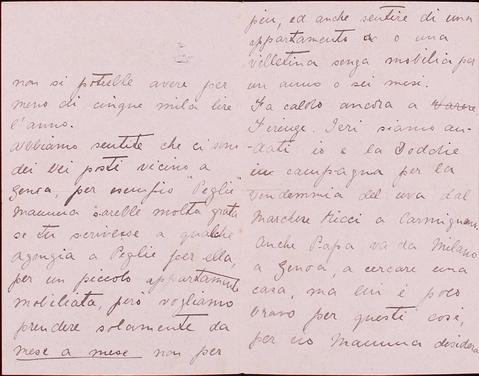 non si potrebbe avere per
meno di cinque mila lire
l'anno.
Abbiamo sentito che ci sono
dei bei posti vicino a
Genoa, per esempio "Peglie"
Mamma sarebbe molto grata
se tu scrivesse a qualche
agenzia a Peglie per ella,
per un piccolo appartamento
mobiliato, però vogliamo
prendere solamente da
mese a mese non per
piu, ed anche sentire di una
appartamento o una
villettina senza mobilia per
un anno o sei mesi.
Fa caldo ancora a
Firenze. Ieri siamo an-
dati io e la Doddie
in campagna per la
vendemmia del uva dal
Marchese Ricci a Carmignano.
Anche Papa va da Milano
a Genoa, a cercare una
casa, ma lui è poco
bravo per questi cosi,
per cio Mamma desidera